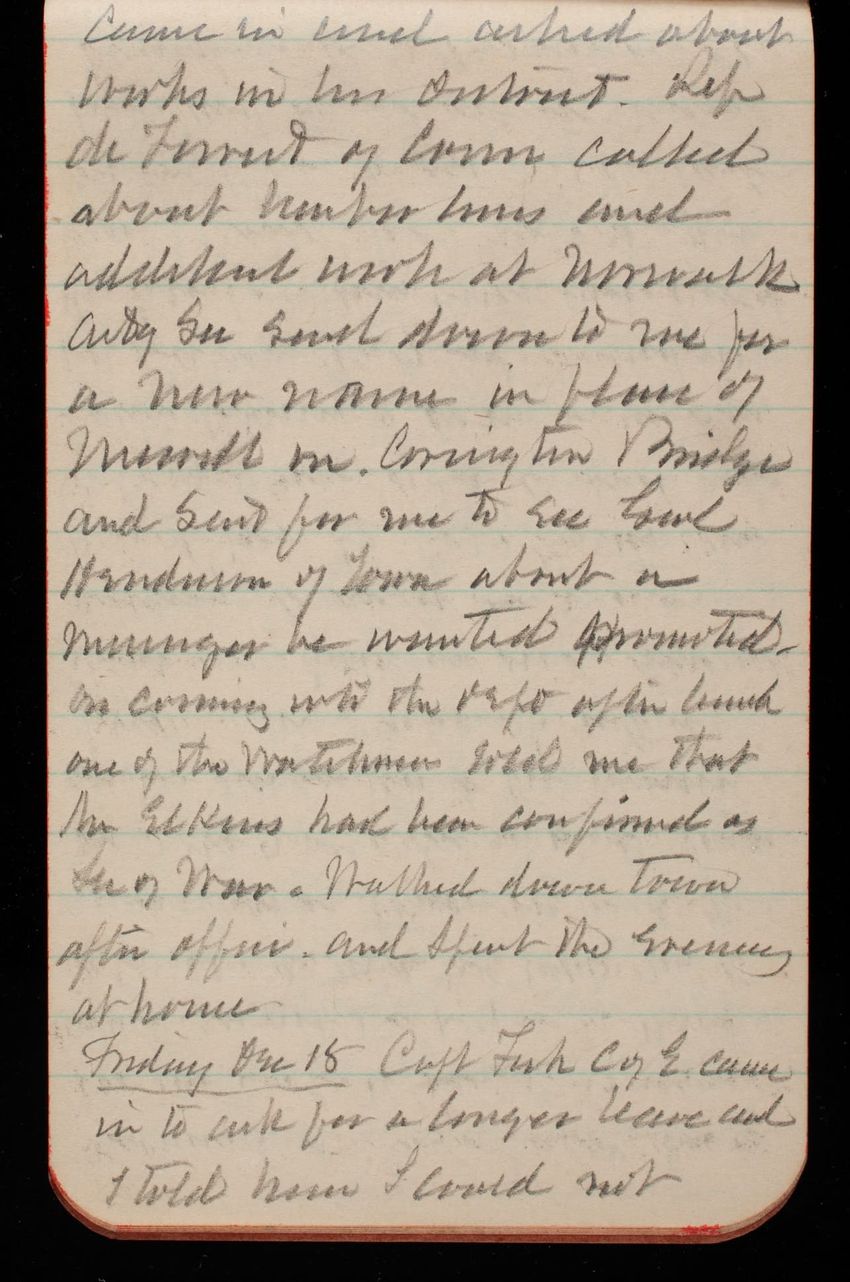 came in and asked about
works in his district. Rep
de Forrest of Conn called
about harbor lines and
additional work at Norwalk
Actg Sec send down to me for
a new name in place of
Merrill on. Covington Bridge
and sent for me to see
Henderson of Iowa about a
messenger he wanted promoted-
on coming into the dept after lunch
one of the Watchmen told me that
Mr Elkins had been confirmed as
Sec of War. Walked down town
after office. and spent the evening
at home
Friday Dec 18 Capt Fisk C of E came
in to ask for a longer leave and
I told him I could not